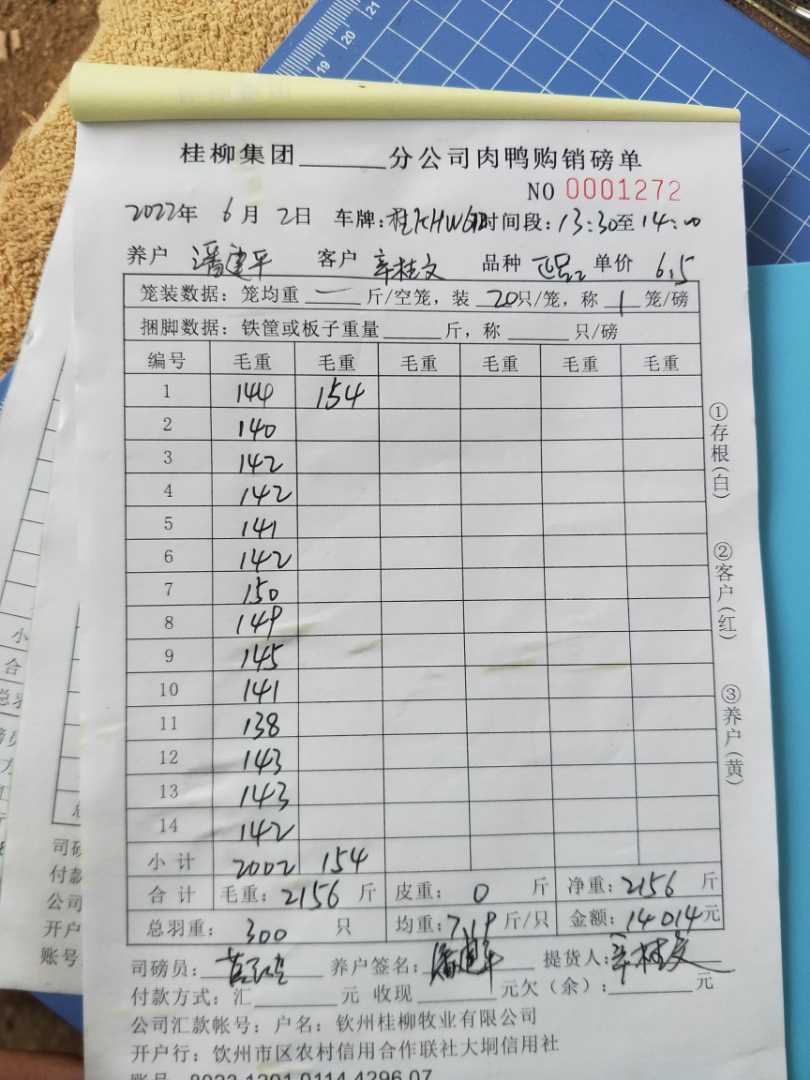 桂柳集团______分公司肉鸭购销磅单
NO 0001272
2022年 6月2日 车牌:桂KHW 时间段:13:30至14:00
养户 潘建平 客户 辛桂文 品种 单价 6.5
笼装数据:笼均重 一 斤/空笼,装 20只/笼,称 1 笼/磅
捆脚数据:铁筐或板子重量______斤,称______只/磅
编号 毛重 毛重 毛重 毛重 毛重 毛重
1 144 154
2 140
3 142
4 142
5 141
6 142
7 150
8 149
9 145
10 141
11 138
12 143
13 143
14 142
小计 2002 154
合计 毛重:2156斤 皮重:0斤 净重:2156斤
总羽重:300只 均重:7.19斤/只 金额:14014元
司磅员: 养户签名:潘建平 提货人:辛桂文
付款方式:汇______元 收现______元欠(余):______元
公司汇款帐号:户名:钦州桂柳牧业有限公司
开户行:钦州市区农村信用合作联社大垌信用社
①存根(白)
②客户(红)
③养户(黄)
小
合
司磅
付款
公司
开户
账号
19 20 21